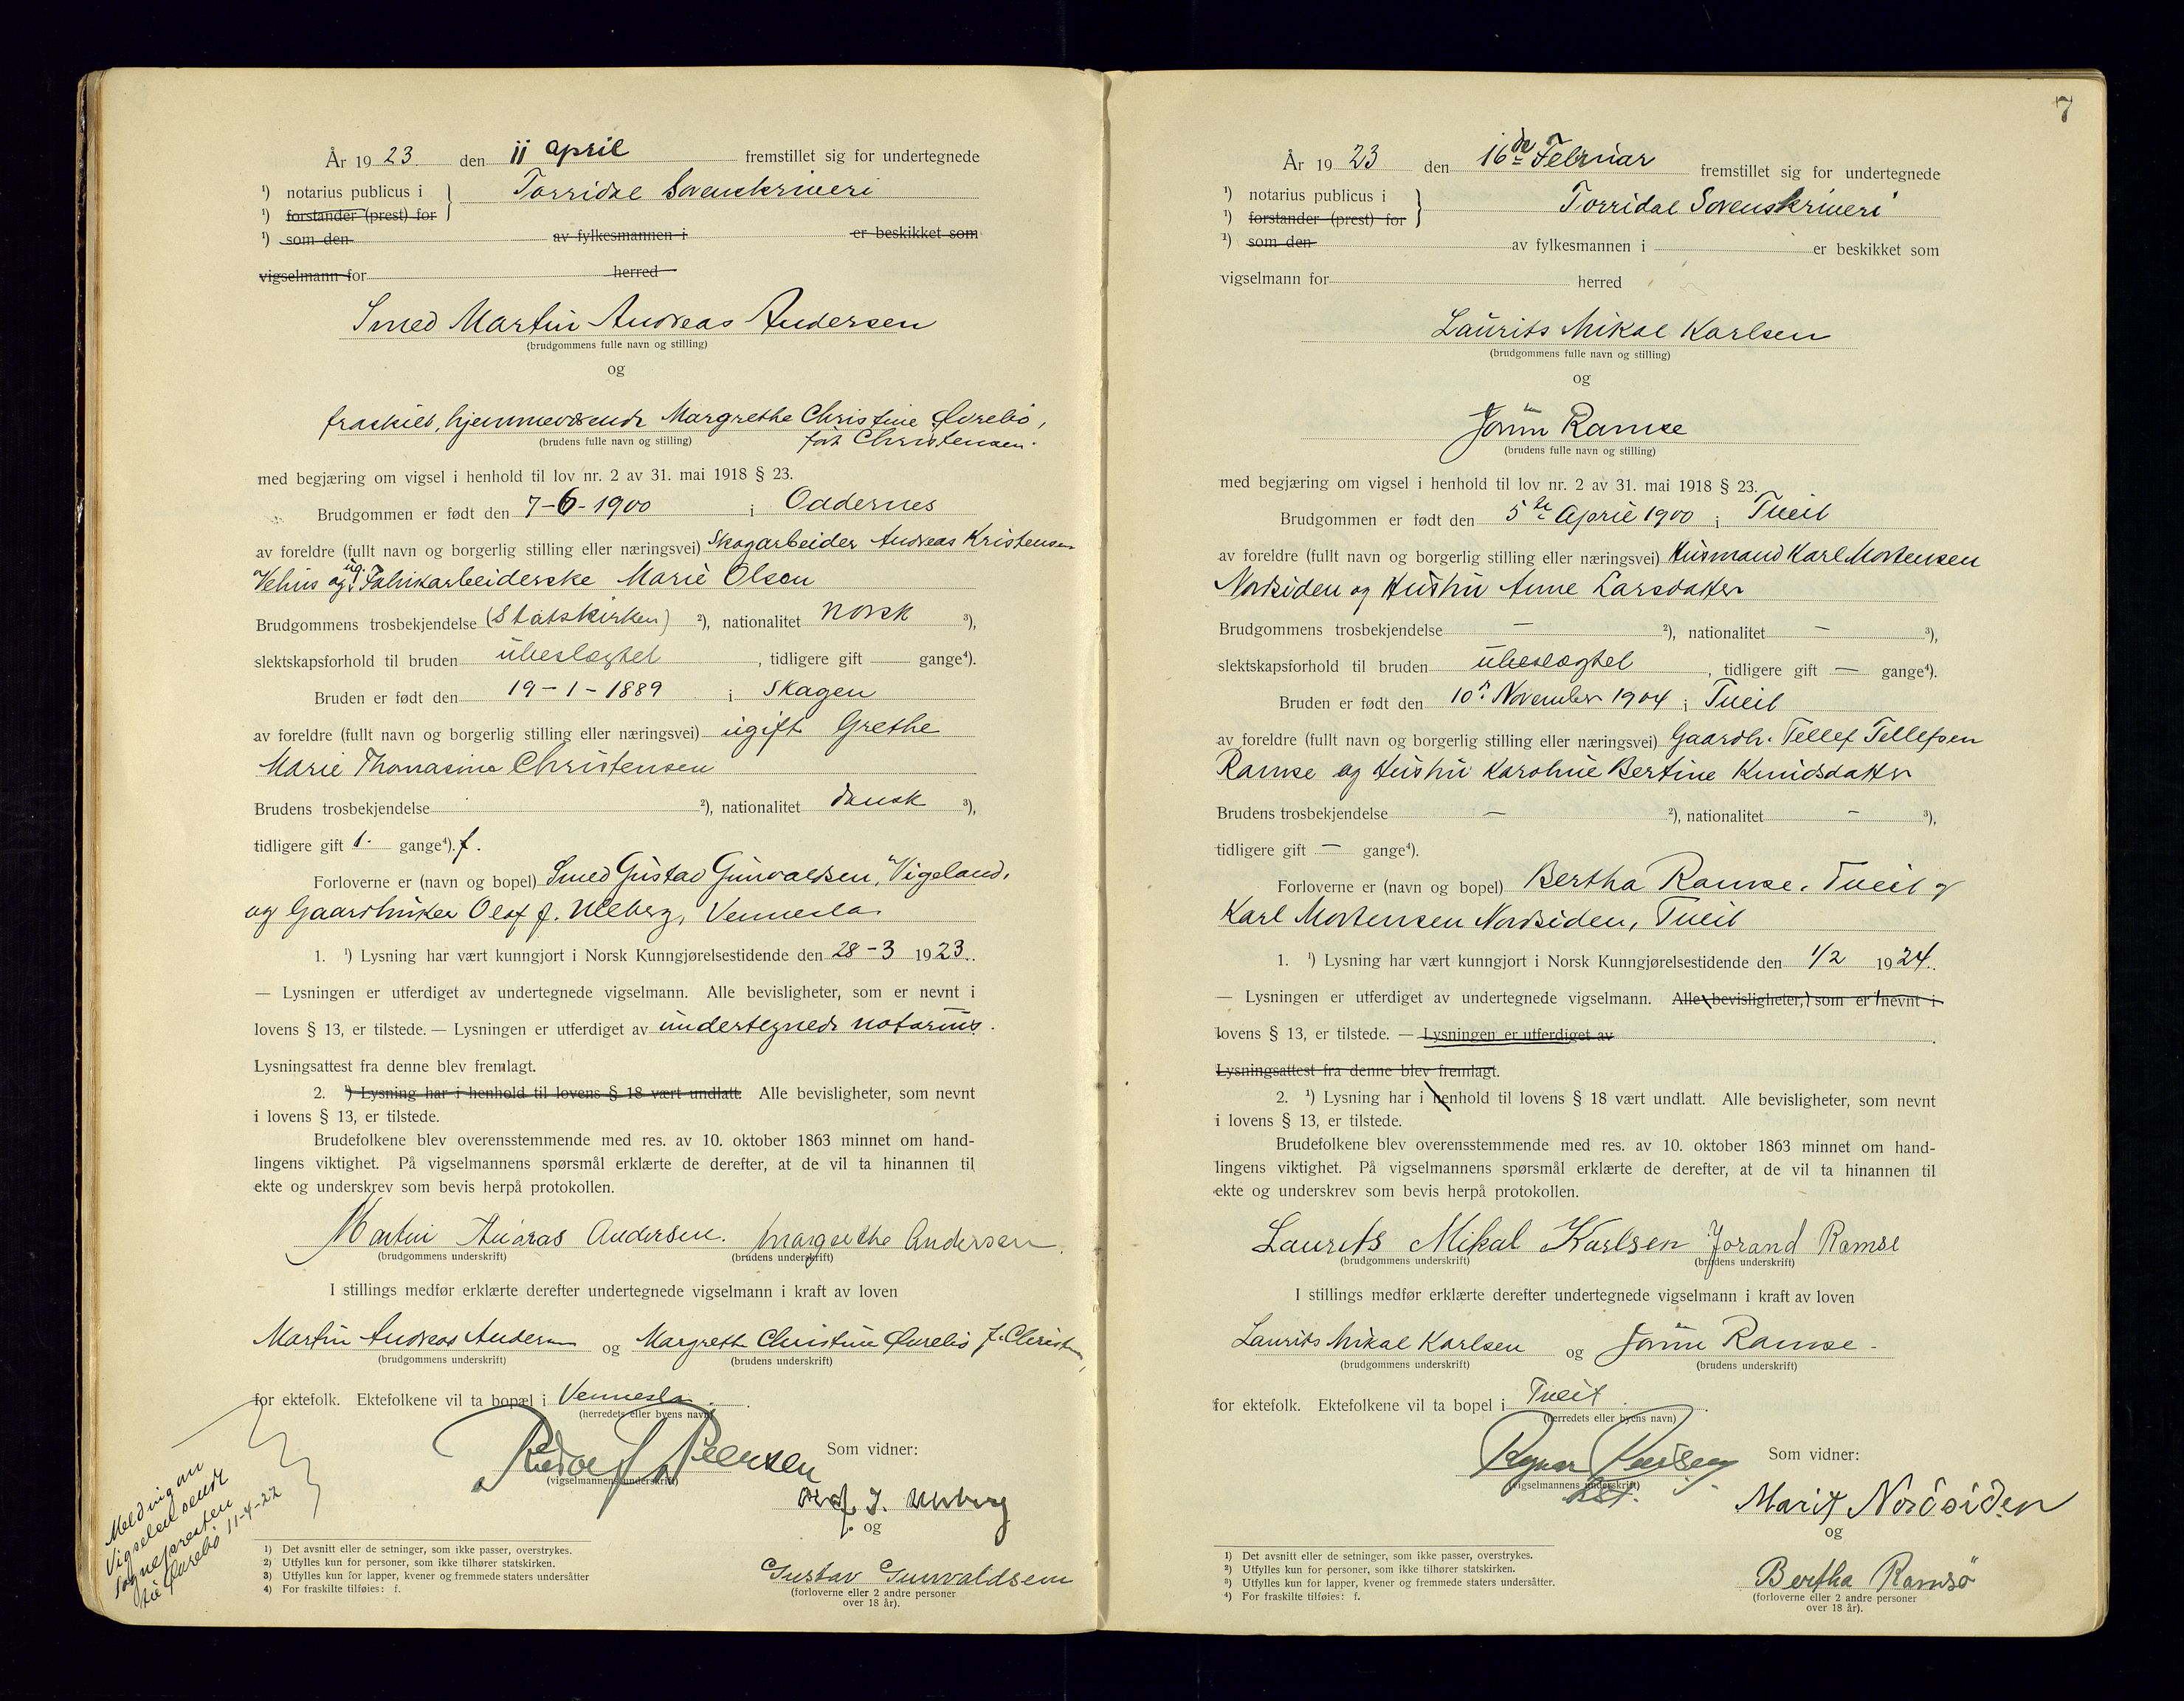 År 1923 den 11 april fremstillet sig for undertegnede
¹) notarius publicus i } Torridal Sorenskriveri
¹) forstander (prest) for
¹) som den av fylkesmannen i er beskikket som
vigselmann for herred
Smed Martin Andreas Andersen
(brudgommens fulle navn og stilling)
og
fraskilt, hjemmeværende Margrethe Christine Øvrebö,
(brudens fulle navn og stilling) født Christensen.
med begjæring om vigsel i henhold til lov nr. 2 av 31. mai 1918 § 23.
Brudgommen er født den 7-6-1900 i Oddernes
av foreldre (fullt navn og borgerlig stilling eller næringsvei) Skogarbeider Andreas Kristensen
og ug. Fabrikarbeiderske Marie Olsen
Brudgommens trosbekjendelse (Statskirken) ²), nationalitet norsk ³),
slektskapsforhold til bruden ubeslægtet, tidligere gift — gange⁴).
Bruden er født den 19-1-1889 i Skagen
av foreldre (fullt navn og borgerlig stilling eller næringsvei) ugift Grethe
Marie Thomasine Christensen
Brudens trosbekjendelse ²), nationalitet dansk ³),
tidligere gift 1. gange⁴). f.
Forloverne er (navn og bopel) Smed Gustav Gunvaldsen, Vigeland,
og Gaardbruker Olaf J. Ulleberg, Vennesla.
1. ¹) Lysning har vært kunngjort i Norsk Kunngjørelsestidende den 28-3 1923.
— Lysningen er utferdiget av undertegnede vigselmann. Alle bevisligheter, som er nevnt i
lovens § 13, er tilstede. — Lysningen er utferdiget av undertegnede notarius.
Lysningsattest fra denne blev fremlagt.
2. ¹) Lysning har i henhold til lovens § 18 vært undlatt. Alle bevisligheter, som nevnt
i lovens § 13, er tilstede.
Brudefolkene blev overensstemmende med res. av 10. oktober 1863 minnet om hand-
lingens viktighet. På vigselmannens spørsmål erklærte de derefter, at de vil ta hinannen til
ekte og underskrev som bevis herpå protokollen.
Martin Andras Andersen. Margrethe Andersen.
(brudgommens underskrift) (brudens underskrift)
I stillings medfør erklærte derefter undertegnede vigselmann i kraft av loven
Martin Andreas Andersen og Margreth Christine Øvrebö f. Christensen,
(brudgommens underskrift) (brudens underskrift)
for ektefolk. Ektefolkene vil ta bopæl i Vennesla.
(herredets eller byens navn)
Som vidner:
(vigselmannens underskrift)
Olaf J. Ulleberg
og
Gustav Gunvaldsen
(forloverne eller 2 andre personer
over 18 år).
Melding om
Vigselen sendt
sognepresten
til Øvrebö 11-4-22
1) Det avsnitt eller de setninger, som ikke passer, overstrykes.
2) Utfylles kun for personer, som ikke tilhører statskirken.
3) Utfylles kun for lapper, kvener og fremmede staters undersåtter
4) For fraskilte tilføies: f.
7
År 1923 den 16de Februar fremstillet sig for undertegnede
¹) notarius publicus i } Torridal Sorenskriveri
¹) forstander (prest) for
¹) som den av fylkesmannen i er beskikket som
vigselmann for herred
Laurits Mikal Karlsen
(brudgommens fulle navn og stilling)
og
Jorun Ramse
(brudens fulle navn og stilling)
med begjæring om vigsel i henhold til lov nr. 2 av 31. mai 1918 § 23.
Brudgommen er født den 5te April 1900 i Tveit
av foreldre (fullt navn og borgerlig stilling eller næringsvei) Husmand Karl Mortensen
Nordsiden og Hustru Anne Larsdatter
Brudgommens trosbekjendelse — ²), nationalitet — ³),
slektskapsforhold til bruden ubeslægtet, tidligere gift — gange⁴).
Bruden er født den 10. November 1904 i Tveit
av foreldre (fullt navn og borgerlig stilling eller næringsvei) Gaardb. Tellef Tellefsen
Ramse og Hustru Karoline Bertine Knudsdatter
Brudens trosbekjendelse — ²), nationalitet — ³),
tidligere gift — gange⁴).
Forloverne er (navn og bopel) Bertha Ramse, Tveit og
Karl Mortensen Nordsiden, Tveit
1. ¹) Lysning har vært kunngjort i Norsk Kunngjørelsestidende den 1/2 1924.
— Lysningen er utferdiget av undertegnede vigselmann. Alle bevisligheter, som er nevnt i
lovens § 13, er tilstede. — Lysningen er utferdiget av
Lysningsattest fra denne blev fremlagt.
2. ¹) Lysning har i henhold til lovens § 18 vært undlatt. Alle bevisligheter, som nevnt
i lovens § 13, er tilstede.
Brudefolkene blev overensstemmende med res. av 10. oktober 1863 minnet om hand-
lingens viktighet. På vigselmannens spørsmål erklærte de derefter, at de vil ta hinannen til
ekte og underskrev som bevis herpå protokollen.
Laurits Mikal Karlsen Jorand Ramse
(brudgommens underskrift) (brudens underskrift)
I stillings medfør erklærte derefter undertegnede vigselmann i kraft av loven
Laurits Mikal Karlsen og Jorun Ramse.
(brudgommens underskrift) (brudens underskrift)
for ektefolk. Ektefolkene vil ta bopel i Tveit.
(herredets eller byens navn)
Som vidner:
(vigselmannens underskrift)
Marit Nordsiden
og
Bertha Ramsø
(forloverne eller 2 andre personer
over 18 år).
1) Det avsnitt eller de setninger, som ikke passer, overstrykes.
2) Utfylles kun for personer, som ikke tilhører statskirken.
3) Utfylles kun for lapper, kvener og fremmede staters undersåtter.
4) For fraskilte tilføies: f.